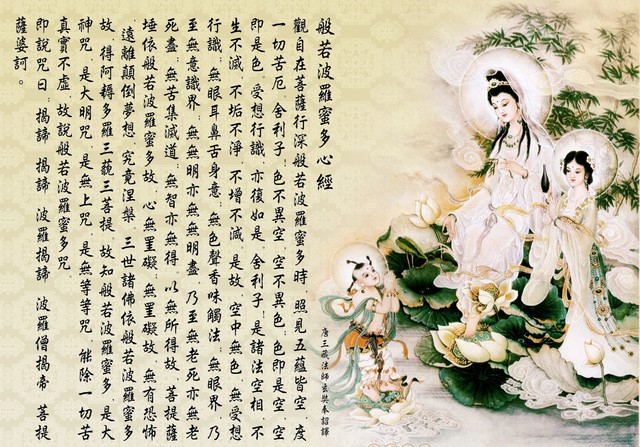 般若波羅蜜多心經
唐三藏法師玄奘奉詔譯
觀自在菩薩行深般若波羅蜜多時 照見五蘊皆空 度
一切苦厄 舍利子!色不異空 空不異色;色即是空 空
即是色 受想行識 亦復如是 舍利子!是諸法空相 不
生不滅 不垢不淨 不增不減 是故 空中無色 無受想
行識;無眼耳鼻舌身意;無色聲香味觸法;無眼界 乃
至無意識界;無無明亦無無明盡 乃至無老死亦無老
死盡;無苦集滅道;無智亦無得 以無所得故 菩提薩
埵依般若波羅蜜多故 心無罣礙;無罣礙故 無有恐怖
遠離顛倒夢想 究竟涅槃 三世諸佛依般若波羅蜜多
故 得阿耨多羅三藐三菩提 故知般若波羅蜜多 是大
神咒 是大明咒 是無上咒 是無等等咒 能除一切苦
真實不虛 故說般若波羅蜜多咒
即說咒曰:揭諦 揭諦 波羅揭諦 波羅僧揭帝 菩提
薩婆訶。